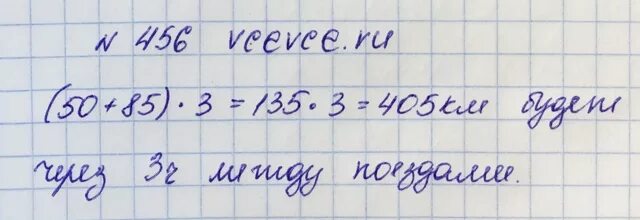 N 456 vcevce.ru
(50+85)·3=135·3=405км будет
через 3ч между поездами.